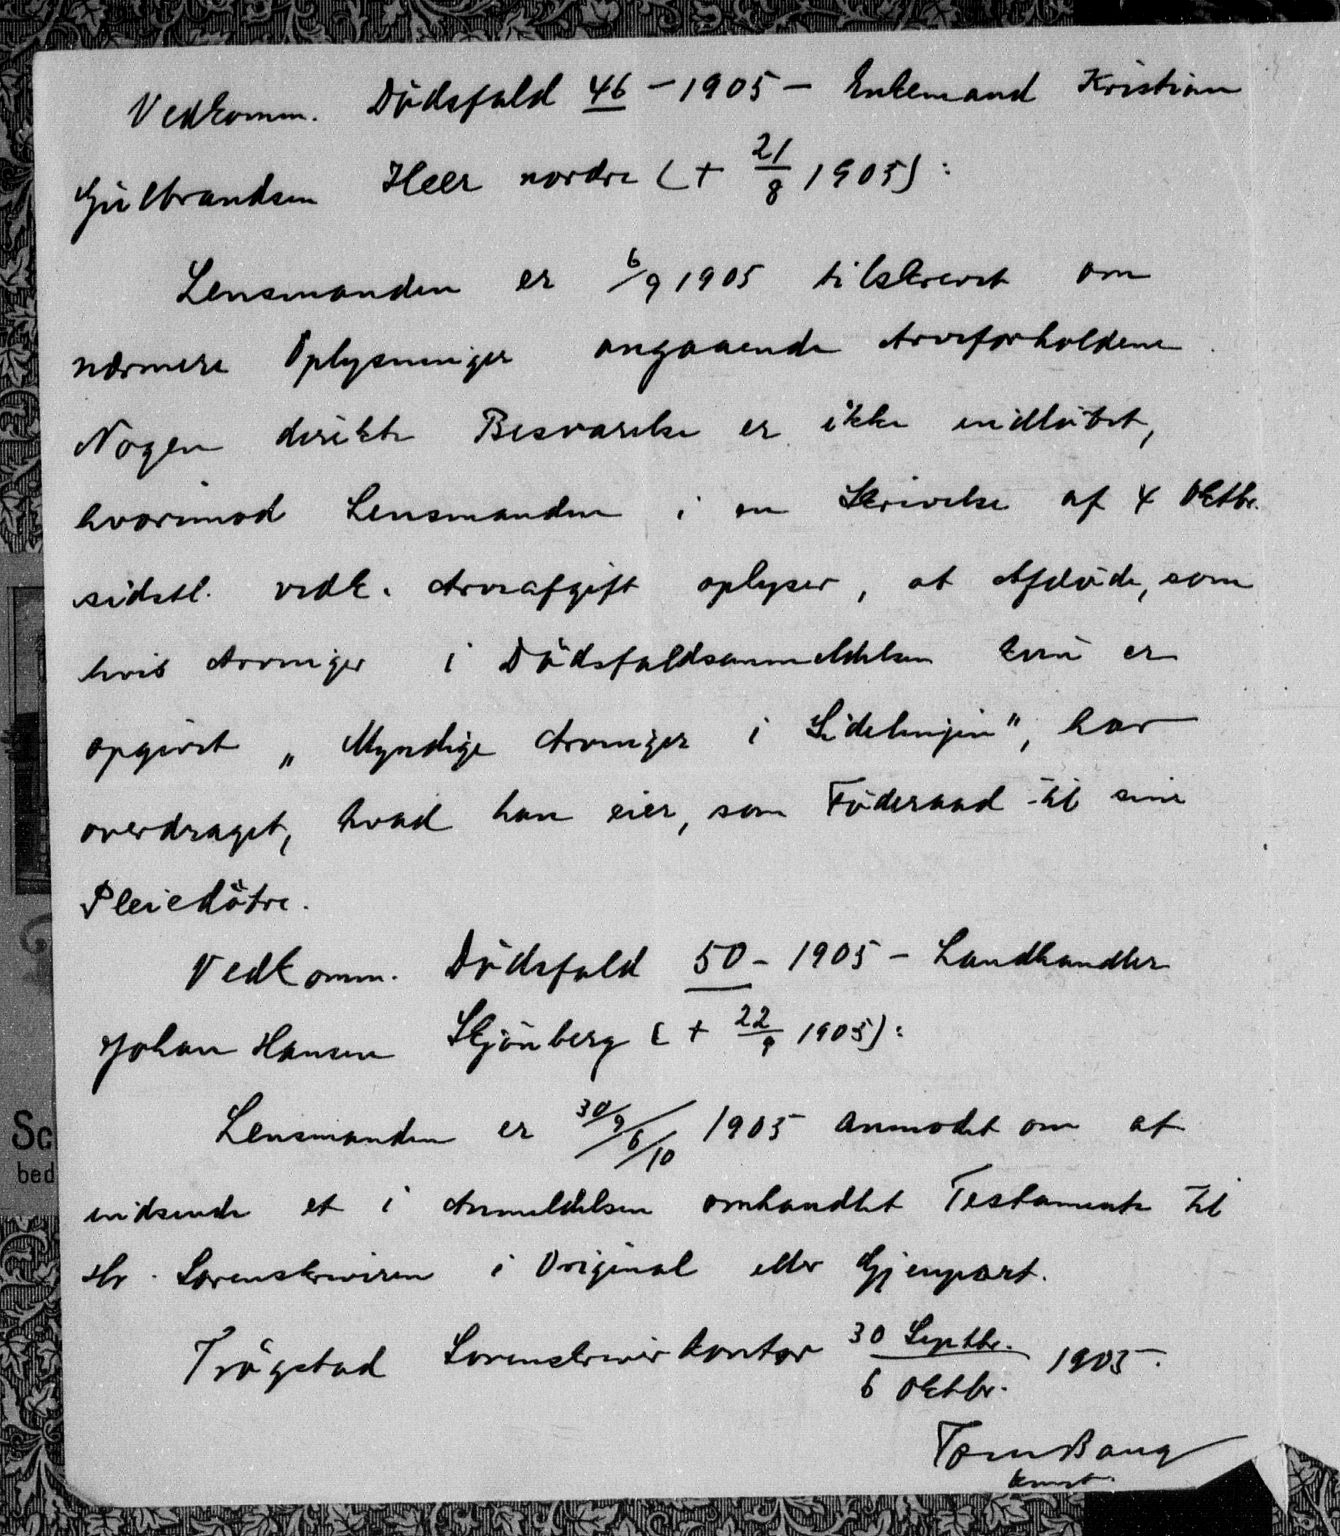 Vedkomm. Dödsfald 46 - 1905 - Enkemand Kristian
Gulbrandsen Heer nordre (+ 21/8 1905):
Lensmanden er 6/9 1905 tilskrevet om
nærmere Oplysninger angaaende Arveforholdene.
Nogen direkte Besvarelse er ikke indløbet,
hvorimod Lensmanden i en Skrivelse af 4 Oktbr.
sidstl. vedk. Arveafgift oplyser, at Afdöde, som
hvis Arvinger i Dödsfaldsanmeldelsen kun er
opgivet „Myndige Arvinger i Sidelinjen", har
overdraget, hvad han eier, som Föderaad til sine
Pleiedötre.
Vedkomm. Dödsfald 50 - 1905 - Landhandler
Johan Hansen Skjönberg (+ 22/9 1905):
Lensmanden er 30/9 6/10 1905 anmodet om at
indsende et i Anmeldelsen omhandlet Testamente til
Hr. Sorenskriveren i Original eller Gjenpart.
Trögstad Sorenskriverkontor 30 Septbr. / 6 Oktbr. 1905.
Tom Bang
const.
Sc
bed